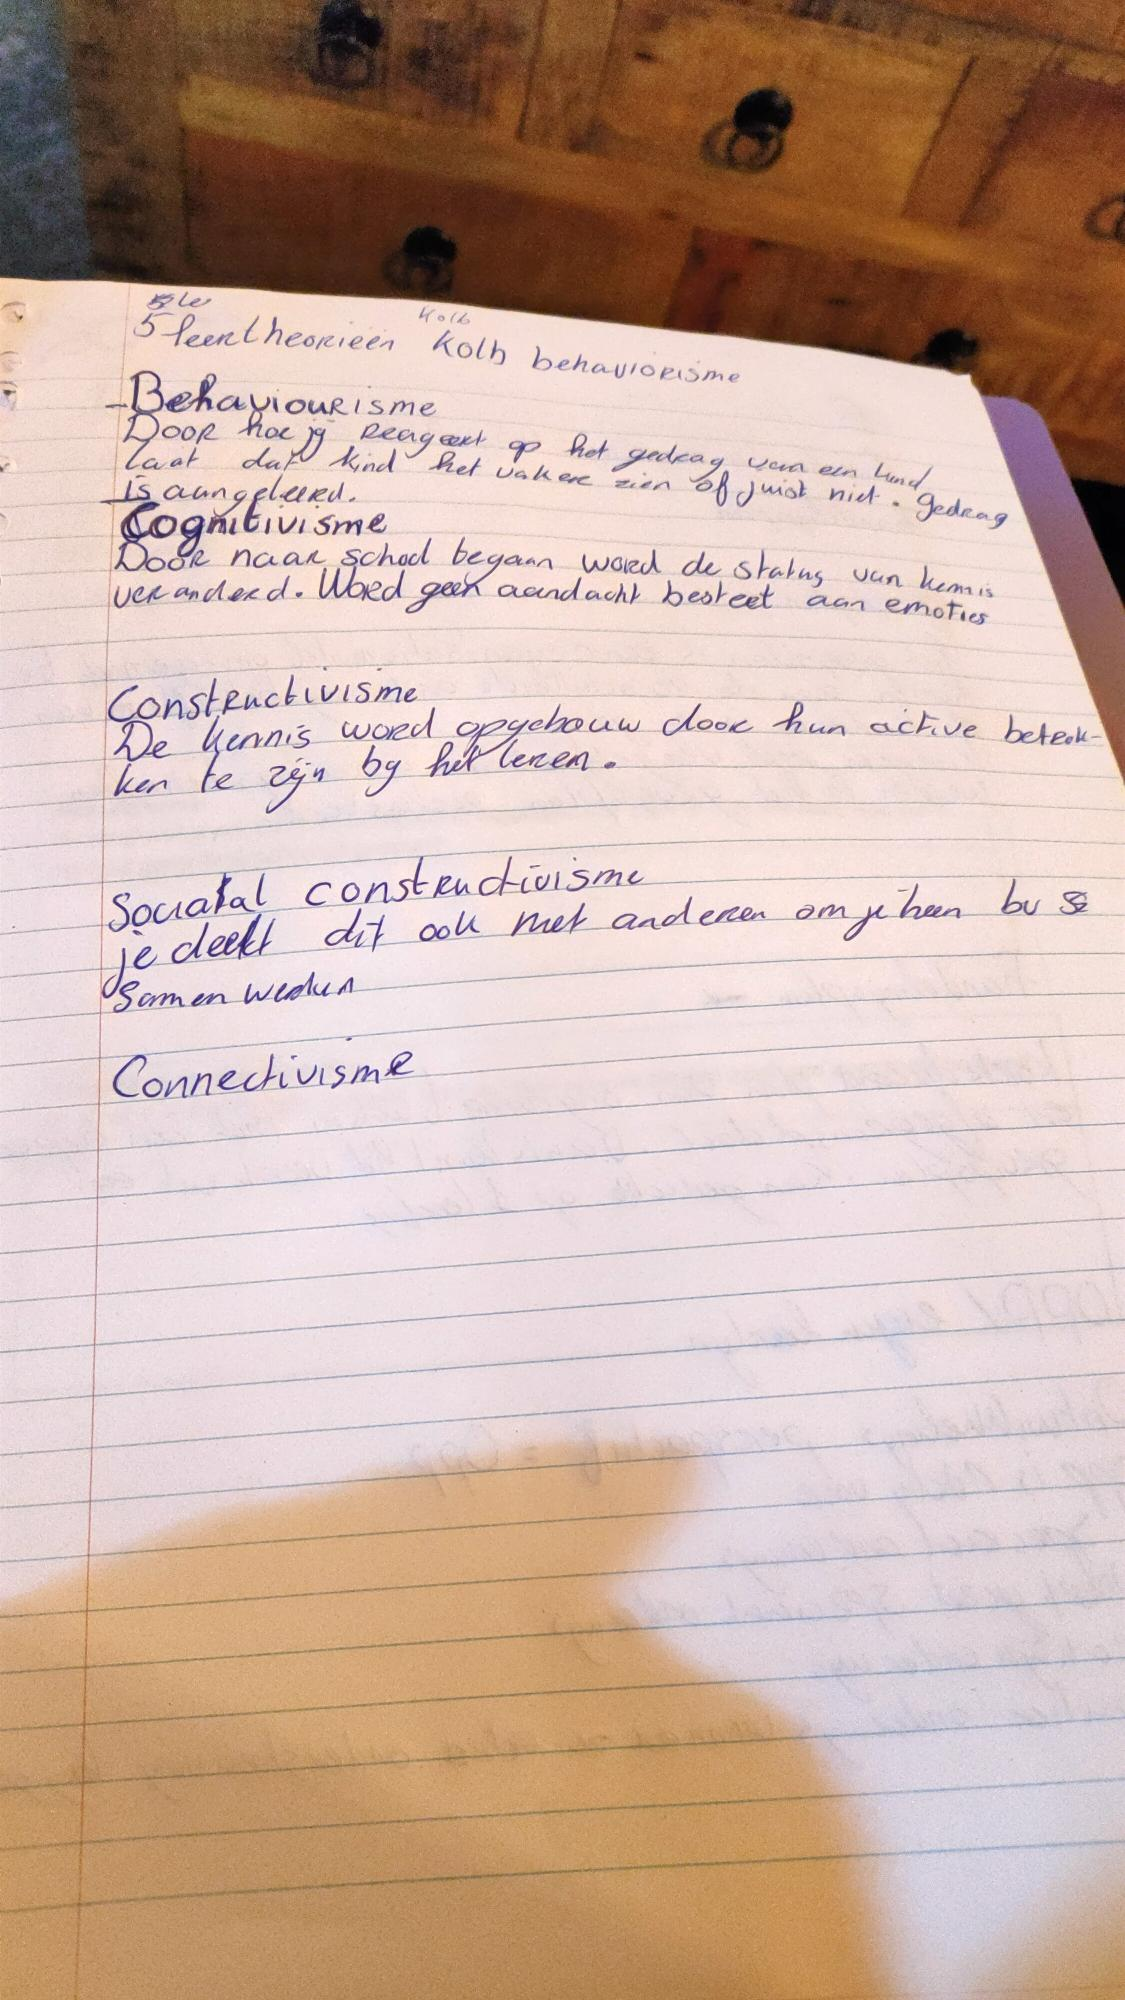 5 le
Kolb
5 leertheorieën Kolb behaviorisme
Behaviourisme
Door hoe jij reageert op het gedrag van een kind
laat dat kind het vaker zien of juist niet. Gedrag
is aangeleerd.
Cognitivisme
Door naar school begaan word de status van kennis
veranderd. Word geen aandacht besteet aan emoties
Constructivisme
De kennis word opgebouw door hun active betrok-
ken te zijn bij het leren.
Sociaal constructivisme
je deelt dit ook met anderen om je heen bv
Samen werken
Connectivisme